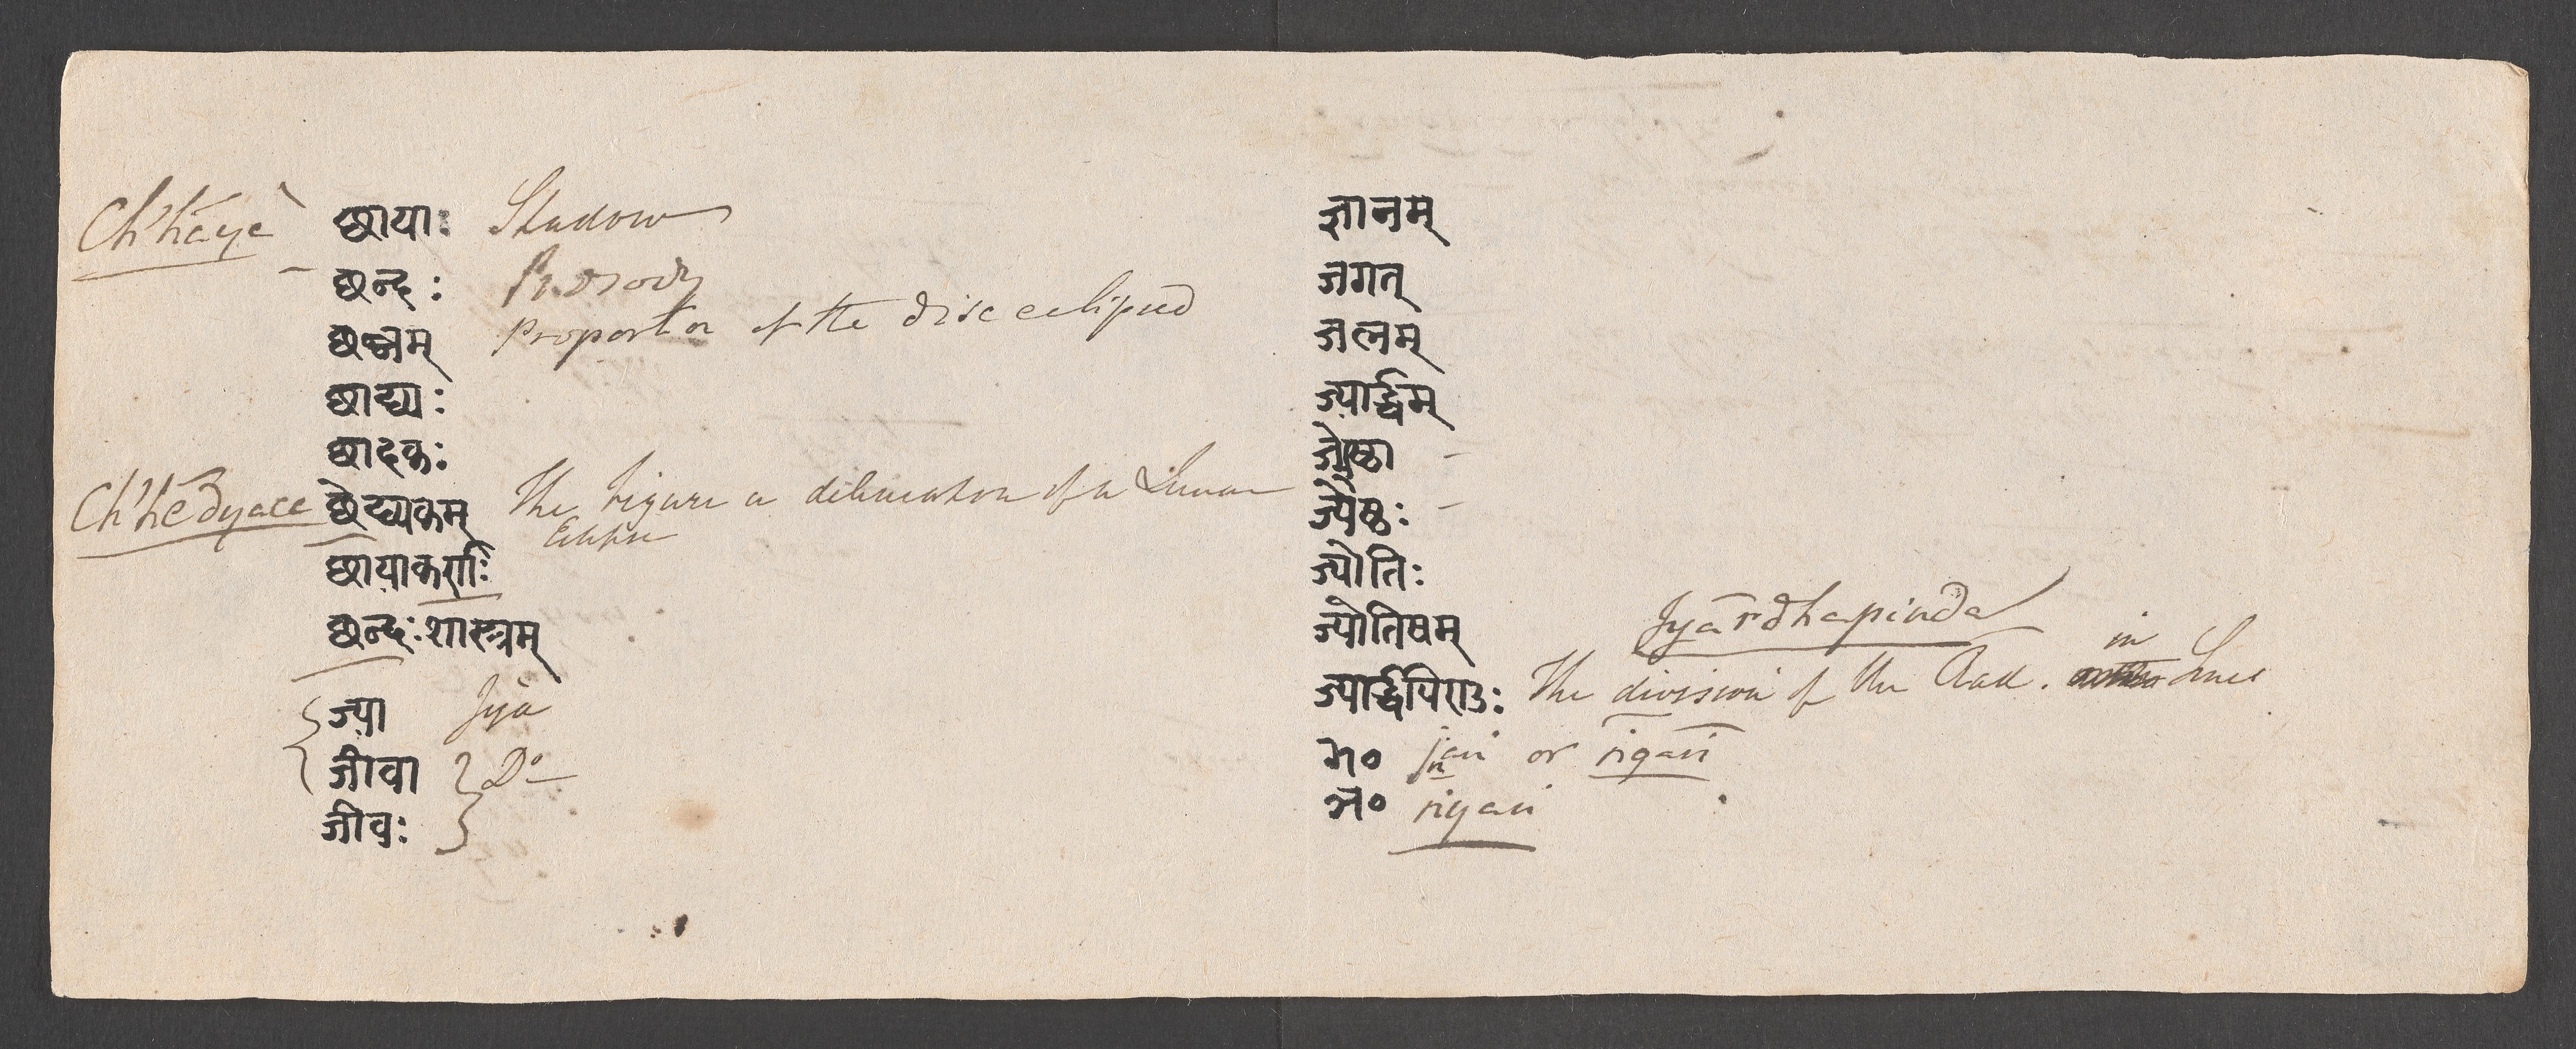 Ch'hāyà छायाः Shadow
छन्दः Prosody
छन्नम् Proportion of the disc eclipsed
छाद्यः
छादकः
Ch'hēdyaca छेद्यकम् The figure or delineation of a Lunar
Eclipse
छायाकर्णः
छन्दःशास्त्रम्
ज्या Jyà
जीवा Do
जीवः
ज्ञानम्
जगत्
जलम्
ज्यार्द्धम्
ज्येष्ठा
ज्येष्ठः
ज्योतिः
ज्योतिषम्
Jyārdhapinda
ज्यार्द्धपिण्डः The division of the Rad. in Sines
or